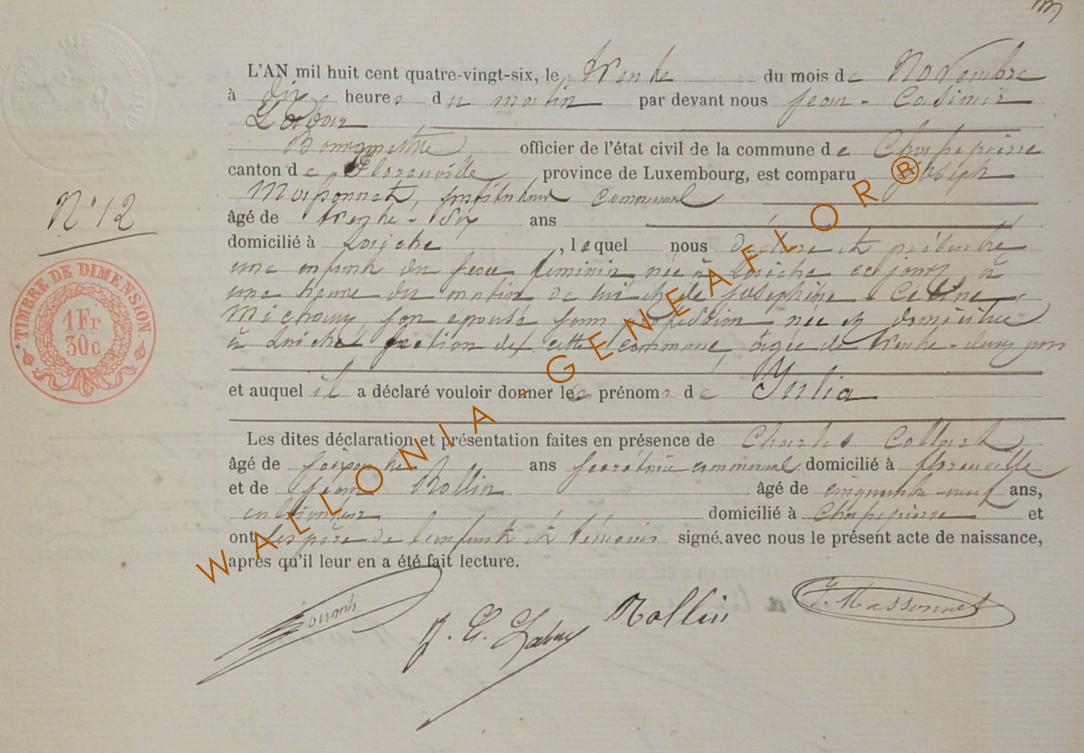 N° 12
TIMBRE DE DIMENSION
1 Fr
30c
L'AN mil huit cent quatre-vingt-six, le trente du mois de Novembre
à dix heures du matin par devant nous Jean-Casimir
Bourgmestre officier de l'état civil de la commune de Chassepierre
canton de Florenville, province de Luxembourg, est comparu Joseph
Massonnet, instituteur communal
âgé de trente-six ans
domicilié à Laiche, lequel nous déclare et présente
une enfant du sexe féminin née à Laiche ce jour, à
une heure du matin de lui et de Joséphine-Celine
son épouse sans profession née et domiciliée
à Laiche, section de cette commune, âgée de trente-deux ans
et auquel il a déclaré vouloir donner les prénoms de Julia
Les dites déclaration et présentation faites en présence de Charles Collard
âgé de soixante ans secrétaire communal domicilié à Florenville
et de Jean Rollin âgé de cinquante-neuf ans,
cultivateur domicilié à Chassepierre et
ont les père de l'enfant et témoins signé, avec nous le présent acte de naissance,
après qu'il leur en a été fait lecture.
Rollin
J. Massonnet
WALLONIA - GENEAFLOR®